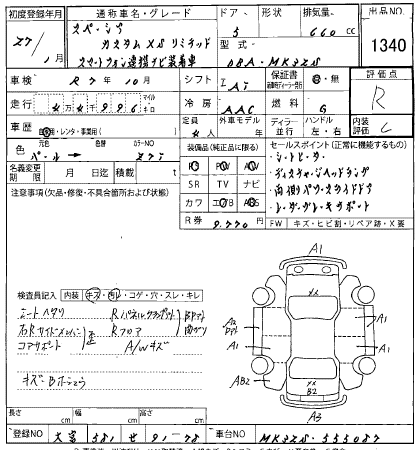 初度登録年月 通称車名・グレード ドア 形状 排気量 出品No.
27/1月 スペーシア カスタムXSリミテッド 5 660cc 1340
スマートフォン連携ナビ装着車 型式 DBA-MK32S
車検 R7年10月 シフト IAT 保証書 有・無 評価点
走行 マイル キロ 冷房 AAC 燃料 G R
車歴 自家用・レンタ・事業用( ) 定員 4人 外車モデル 年 ディーラー 並行 ハンドル 左・右 内装評価 C
色 パール → 色替 カラーNo. Z7T
装備品(純正品に限る) セールスポイント(正常に機能するもの)
名義変更期限 月 日迄 積載 t
PS PW AV
・シートヒーター
SR TV ナビ
・ディスチャージヘッドランプ
カワ エアB ABS
・両側パワースライドドア
・レーダーブレーキサポート
R券 9,770円
FW キズ・ヒビ割・リペア跡・X要
注意事項(欠品・修復・不具合箇所および状態)
検査員記入 内装 キズ・汚れ・コゲ・穴・スレ・キレ
シートヘタリ
コアサポート 歪
Rフロア
A/Wキズ
曲がり
A1
A2
A1
A1
A1
AB2
B2
A3
長さ cm 幅 cm 高さ cm
登録No. 581 せ 91-78 車台No. MK32S-555087